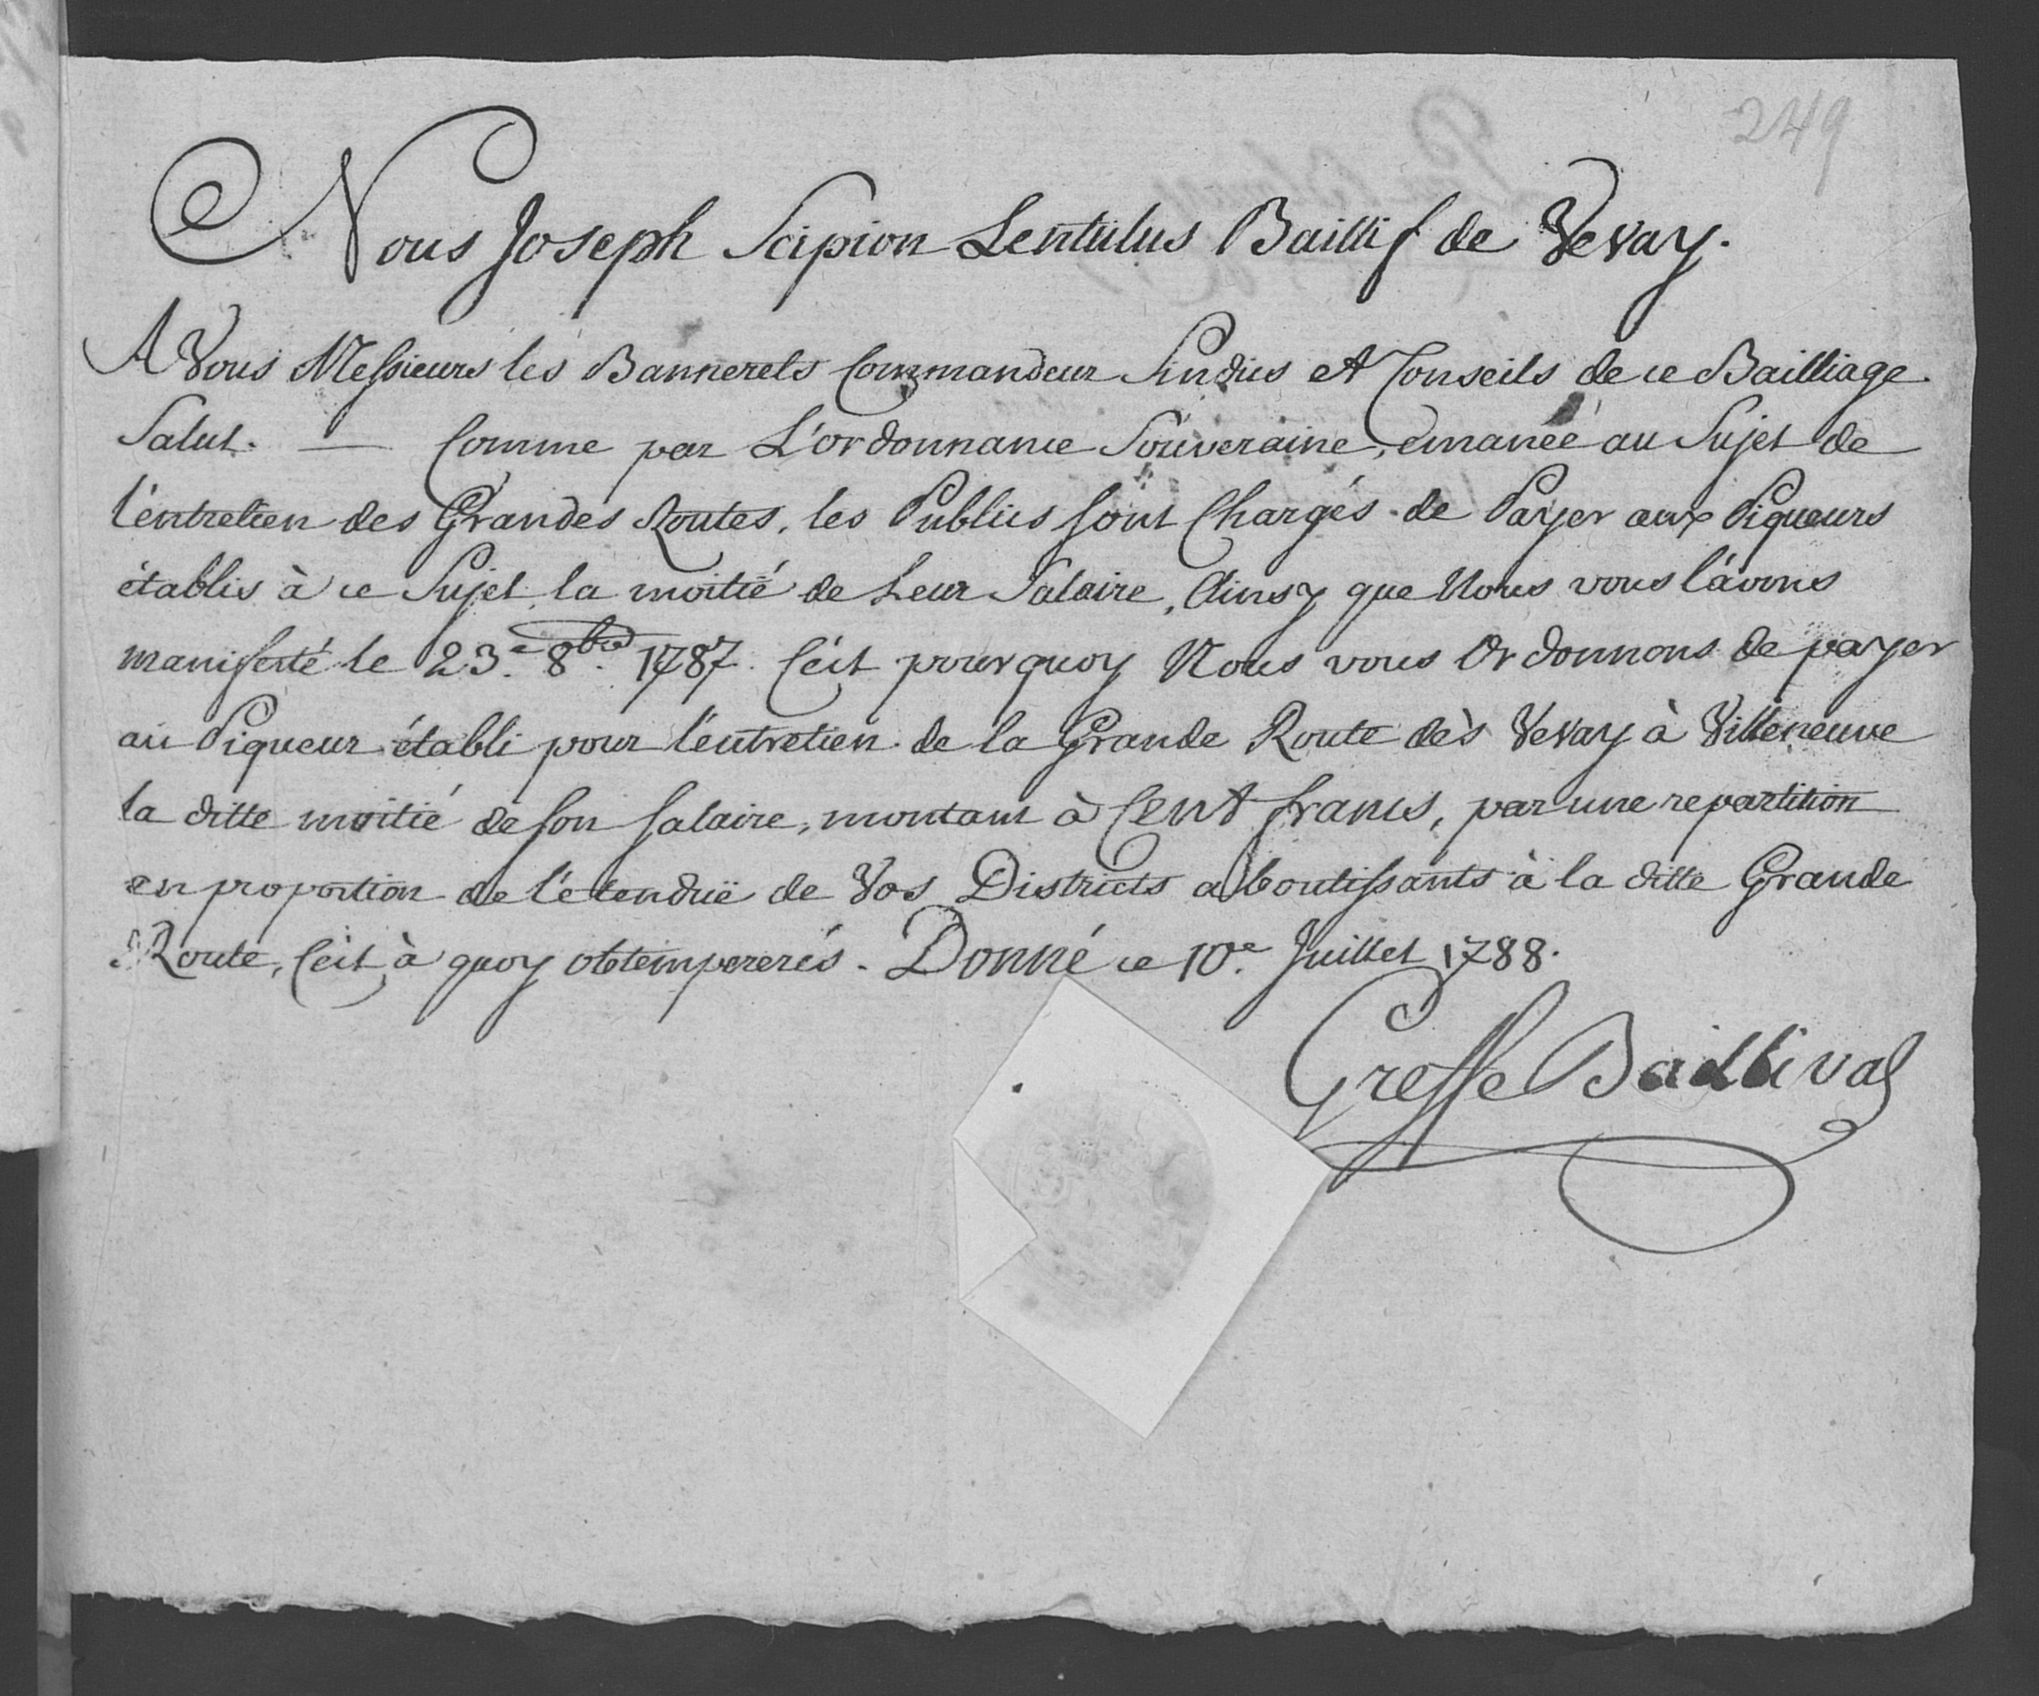 249
Nous Joseph Scipion Lentulus Baillif de Vevay.
A Vous Messieurs les Bannerets Commandeur Sindics et Conseils de ce Bailliage.
Salut. — Comme par L'ordonnance Souveraine, emanée au Sujet de
l'entretien des Grandes Routes, les Publics sont Chargés de Payer aux Piqueurs
établis à ce Sujet la moitié de Leur Salaire, Ainsy que Nous vous l'avons
manifesté le 23.e 8bre 1787. C'est pourquoy Nous vous Ordonnons de payer
au Piqueur établi pour l'entretien de la Grande Route dès Vevay à Villeneuve
la ditte moitié de son salaire, montant à Cent francs, par une repartition
en proportion de l'étenduë de Vos Districts aboutissants à la ditte Grande
Route, C'est à quoy obtempererés. Donné ce 10.e Juillet 1788.
Greffe Baillival